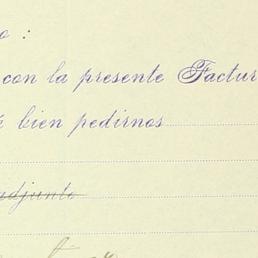 o :
con la presente Factur
bien pedirnos
adjunto